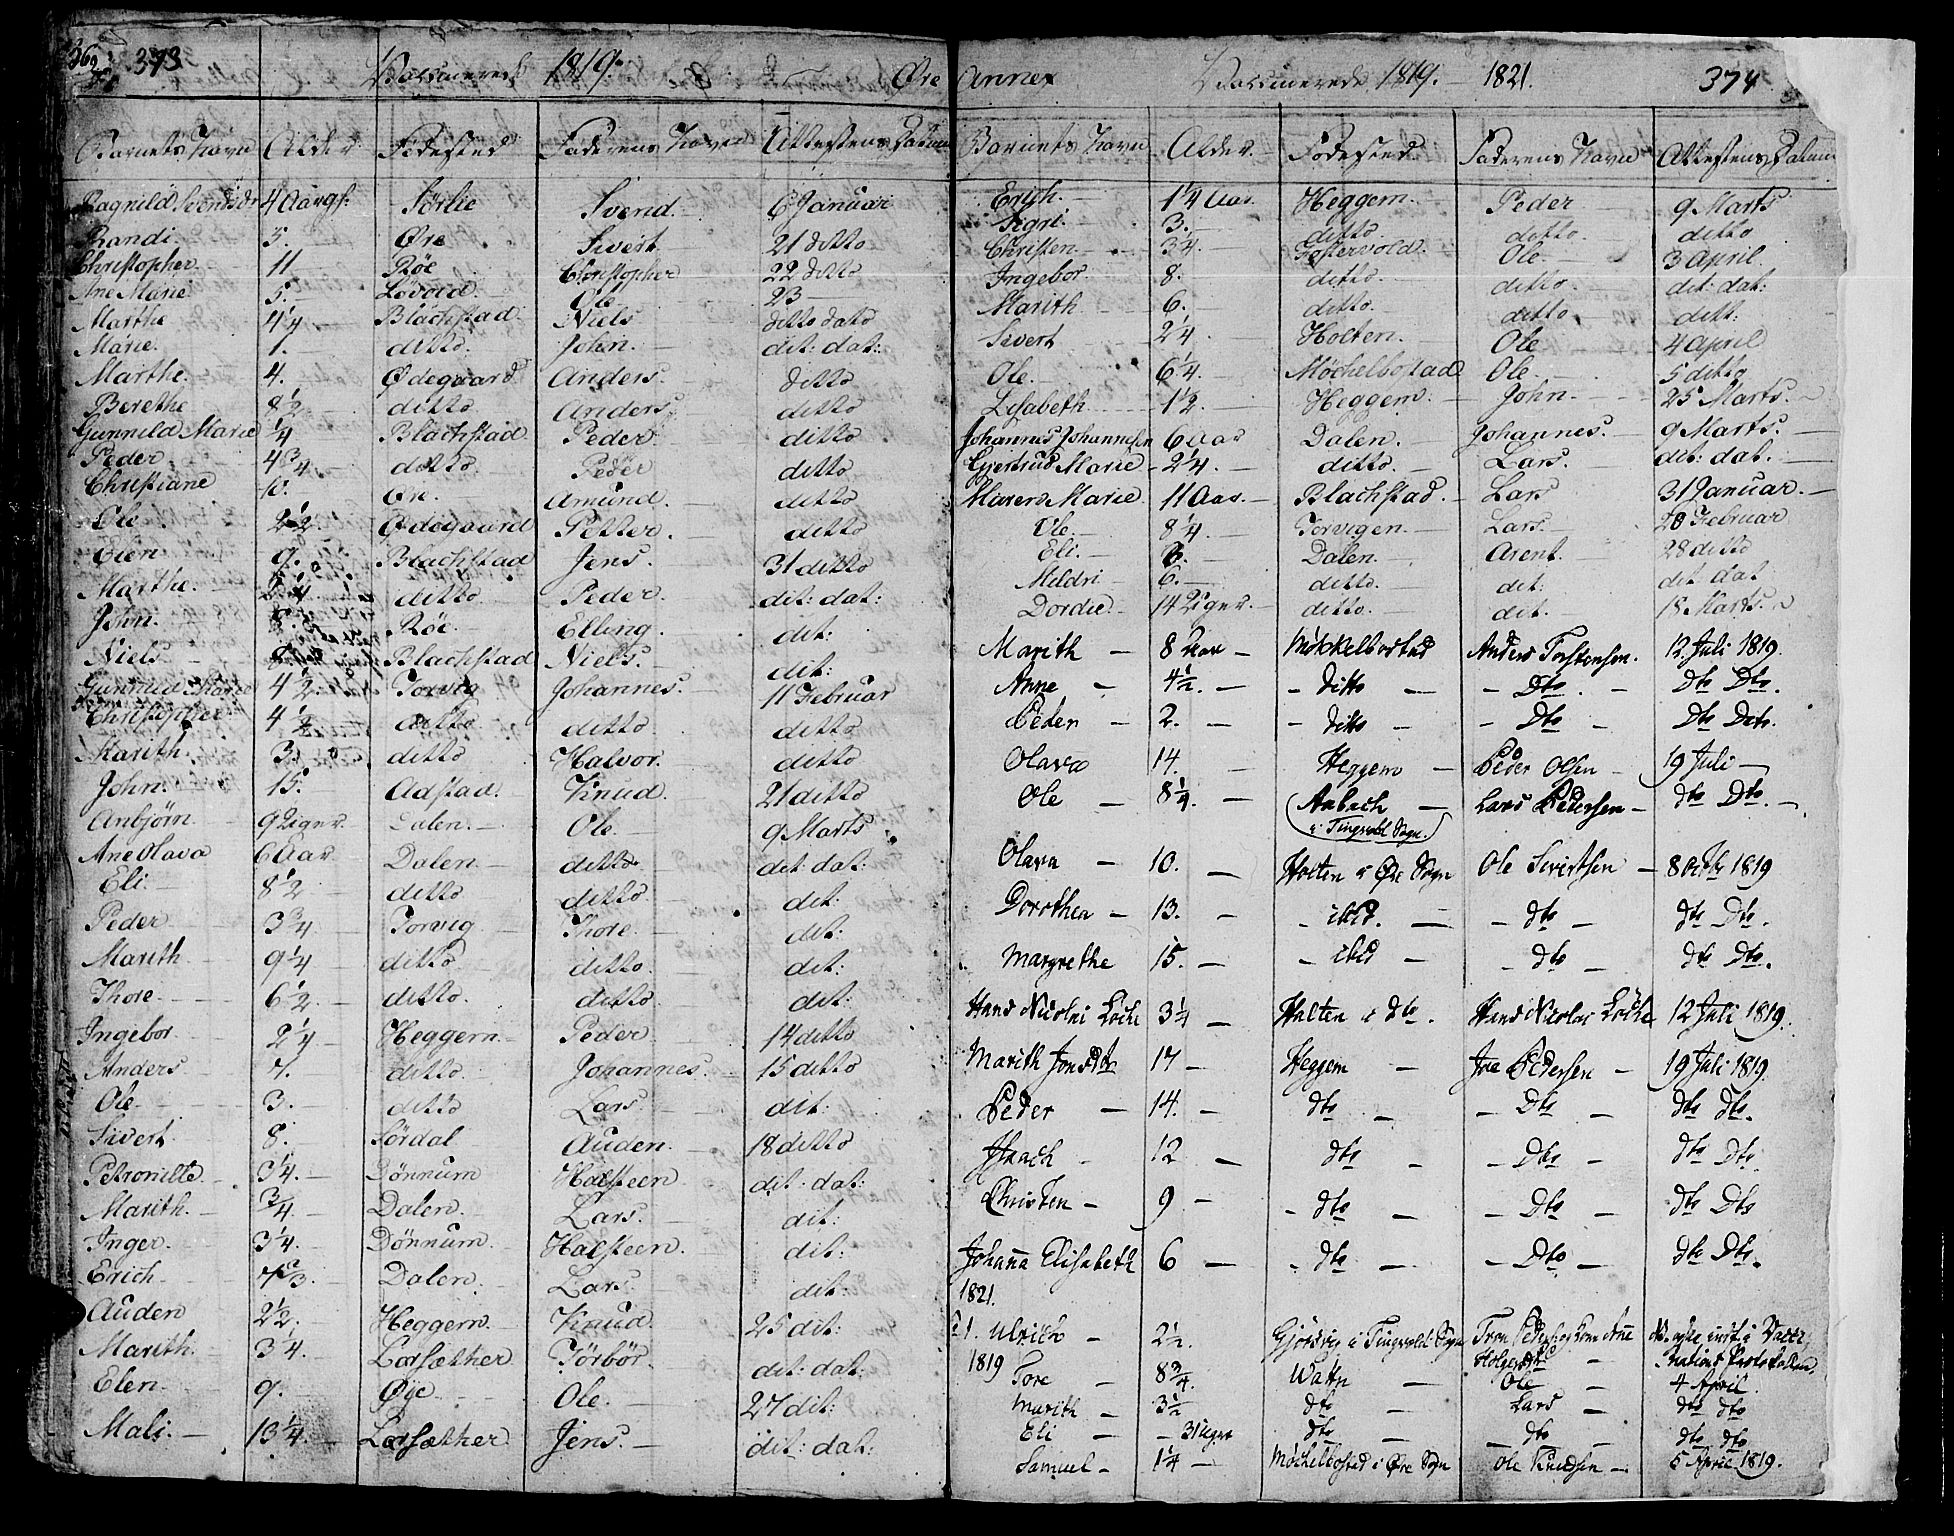 373 Vaccinerede 1819. Øre
Barnets Navn Alder Fødested Faderens Navn Attestens Datum
Ragnild 4 Aar Sørlie Svend. 6 Januar
Randi 5. Øre Sivert 21 ditto
Christopher 11 Røe Christopher 22 ditto
Ane Marie 5. Løvold Ole 23
Marthe 4 1/4 Blachstad Niels ditto dato
Marie. 1. ditto. John. dit: dat:
Marthe. 4. Ødegaard Anders. ditto
Berethe 8 1/2 ditto Anders ditto
Gunnild Marie 1/4 Blachstad Peder ditto
Peder 4 3/4 ditto. Peder ditto
Christiane Øre Amund. ditto
Ole 2 1/2 Ødegaard Petter. ditto
9. Blachstad Jens. 31 ditto
Marthe. ditto. Peder. dit: dat:
John. Røe. Elling. dit:
Niels Blachstad Niels. dit:
Gunnild Marie 4 1/2 Torvig Johannes. 11 Februar
Christopher 4 1/2 ditto. ditto. ditto
Marith. 3. ditto Halvor. ditto
John. 15. Adstad. Knud. 21 ditto
Anbjørn 9 Uger. Dalen. Ole. 9 Marts
Ane Olava 6 Aar Dalen. ditto dit: dat:
Eli. 8 1/2 ditto ditto. dit:
Peder 3 3/4 Torvig Thore. dit:
Marith 9 1/4 ditto ditto. dit:
Thore. 6 1/2. ditto. ditto. dit:
Ingebor. 2 1/4 Heggem Peder 14 ditto
Anders 7. ditto. Johannes. 15 ditto
Ole 3. ditto Lars dit:
Sivert 8. Sørdal Auden. 18 ditto
Petronille. 3 1/4. Dønnum Halsteen dit: dat:
Marith. 3/4. Dalen. Lars. dit:
Inger. 3 1/4. Dønnum. Halsteen. dit:
Erich Dalen. Lars. dit:
Auden 2 1/2. Heggem. Knud. 25 dit:
Marith. 3 1/4. Lørsæther Tørbør. dit: dat:
Elen. 9. Øye Ole. 27 dit:
Mali. 13 1/4. Lørsæther Jens. dit: dat:
Annex Vaccinerede 1819. 1821. 374
Barnets Navn Alder. Fødested. Faderens Navn Attestens Datum
Erich. 1 1/4 Aar. Heggem. Peder 9 Marts
Sigri 3. ditto ditto. ditto
Christen 3 1/4. Ole. 3 April
Ingebor 8. ditto. ditto. dit: dat:
Marith 6. ditto. ditto ditt:
Sivert 2 1/4. Holten. Ole 4 April
Ole. 6 1/4. Møchelbostad Ole. 5 ditto
Lisabeth 1 1/2. Heggem. John. 25 Marts.
Johannes Johannesen 6 Aar Dalen. Johannes. 9 Marts.
Giertrud Marie 2 1/4. ditto. Lars. dit: dat.
Maren Marie 11 Aar. Blachstad. Lars 31 Januar.
Ole. 8 1/4. Torvigen. Lars 28 Februar
Eli. Dalen. Arent. 28 ditto
Mildri 6. ditto. dit: dit dat
Dordie 14 Uger. ditto. dit. 18 Marts.
Marith 8 Aar Møkkelbostad Anders Torstensen. 12 Juli 1819.
Anne 4 1/2. ditto Dto. Dto Dto.
Peder 2. ditto Dto Dto Dato.
Olava 14. Heggem Peder Olsen 19 Juli
Ole 8 1/4. Aabach Lars Pedersen dto Dto.
i Tingvold Sogn.
Olava 10. Holten i Øre Sogn Ole Sivertsen 8 Octbr 1819
Dorothea 13. ibid. dto dto Dto.
Margrethe 15. ibid dto dto Dto.
Hans Nicolai Løche 3 1/4 Halten i dto. Hans Nicolai Løche 12 Juli 1819.
Marith Jonsdtr 17 Heggem Joe Pedersen 19 Juli 1819.
Peder 14. dto Dto dto dto.
Isach 12 dto Dto dto Dto.
Christen 9 dto Dto dto Dto
Johanna Elisabeth 6 dto Dto dto Dto.
1821.
Ulrich 2 1/2. Gjøsvig i Tingvold Sogn
1819 Tore 8 3/4. Ole 4 April.
Marith 3 1/2 dto Lars dto dto
Eli 3 Uger dto dto dto dto
Samuel 1 1/4 Møchelbostad i Øre Sogn Ole Knudsen 5 April 1819.